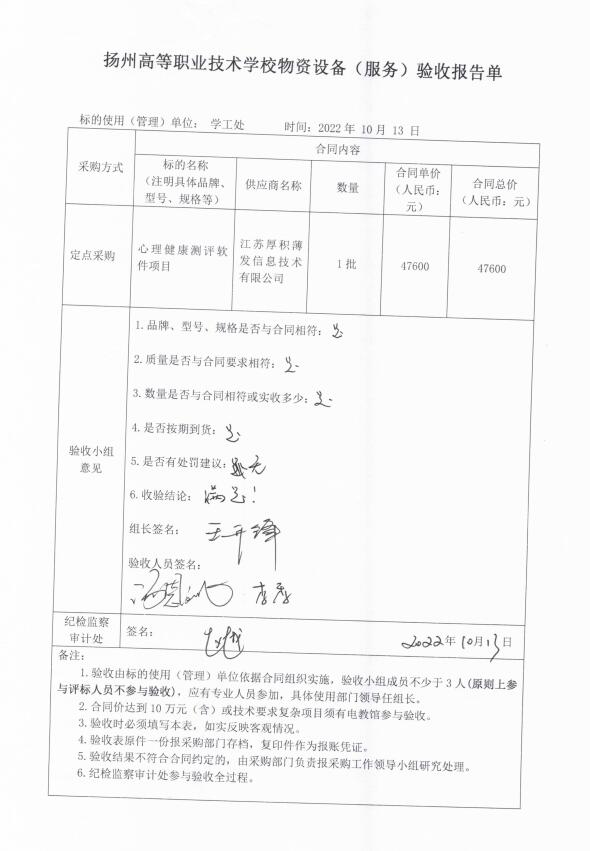 扬州高等职业技术学校物资设备（服务）验收报告单
标的使用（管理）单位： 学工处 时间：2022 年 10 月 13 日
采购方式
合同内容
标的名称
（注明具体品牌、
型号、规格等）
供应商名称
数量
合同单价
（人民币：
元）
合同总价
（人民币：元）
定点采购
心理健康测评软
件项目
江苏厚积薄
发信息技术
有限公司
1 批
47600
47600
验收小组
意见
1.品牌、型号、规格是否与合同相符：是
2.质量是否与合同要求相符：是
3.数量是否与合同相符或实收多少：是
4.是否按期到货：是
5.是否有处罚建议：无
6.收验结论：满意！
组长签名：王开锋
验收人员签名：
纪检监察
审计处
签名：
2022年10月13日
备注：
1.验收由标的使用（管理）单位依据合同组织实施，验收小组成员不少于 3 人(原则上参
与评标人员不参与验收)，应有专业人员参加，具体使用部门领导任组长。
2.合同价达到 10 万元（含）或技术要求复杂项目须有电教馆参与验收。
3.验收时必须填写本表，如实反映客观情况。
4.验收表原件一份报采购部门存档，复印件作为报账凭证。
5.验收结果不符合合同约定的，由采购部门负责报采购工作领导小组研究处理。
6.纪检监察审计处参与验收全过程。